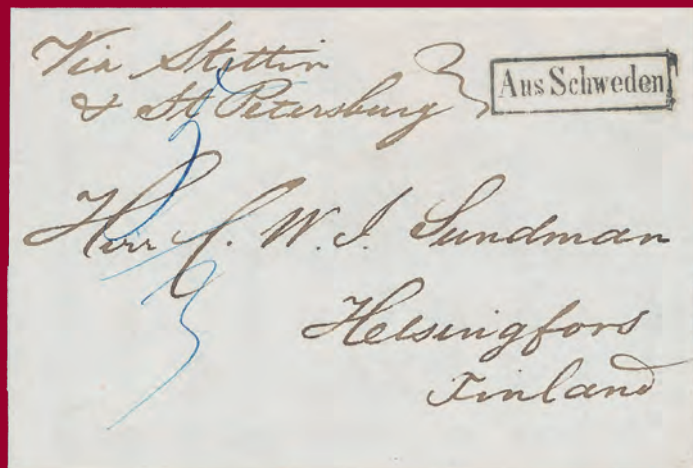 Via Stettin
& St Petersburg
Aus Schweden
Herr C. W. I. Sundman
Helsingfors
Finland